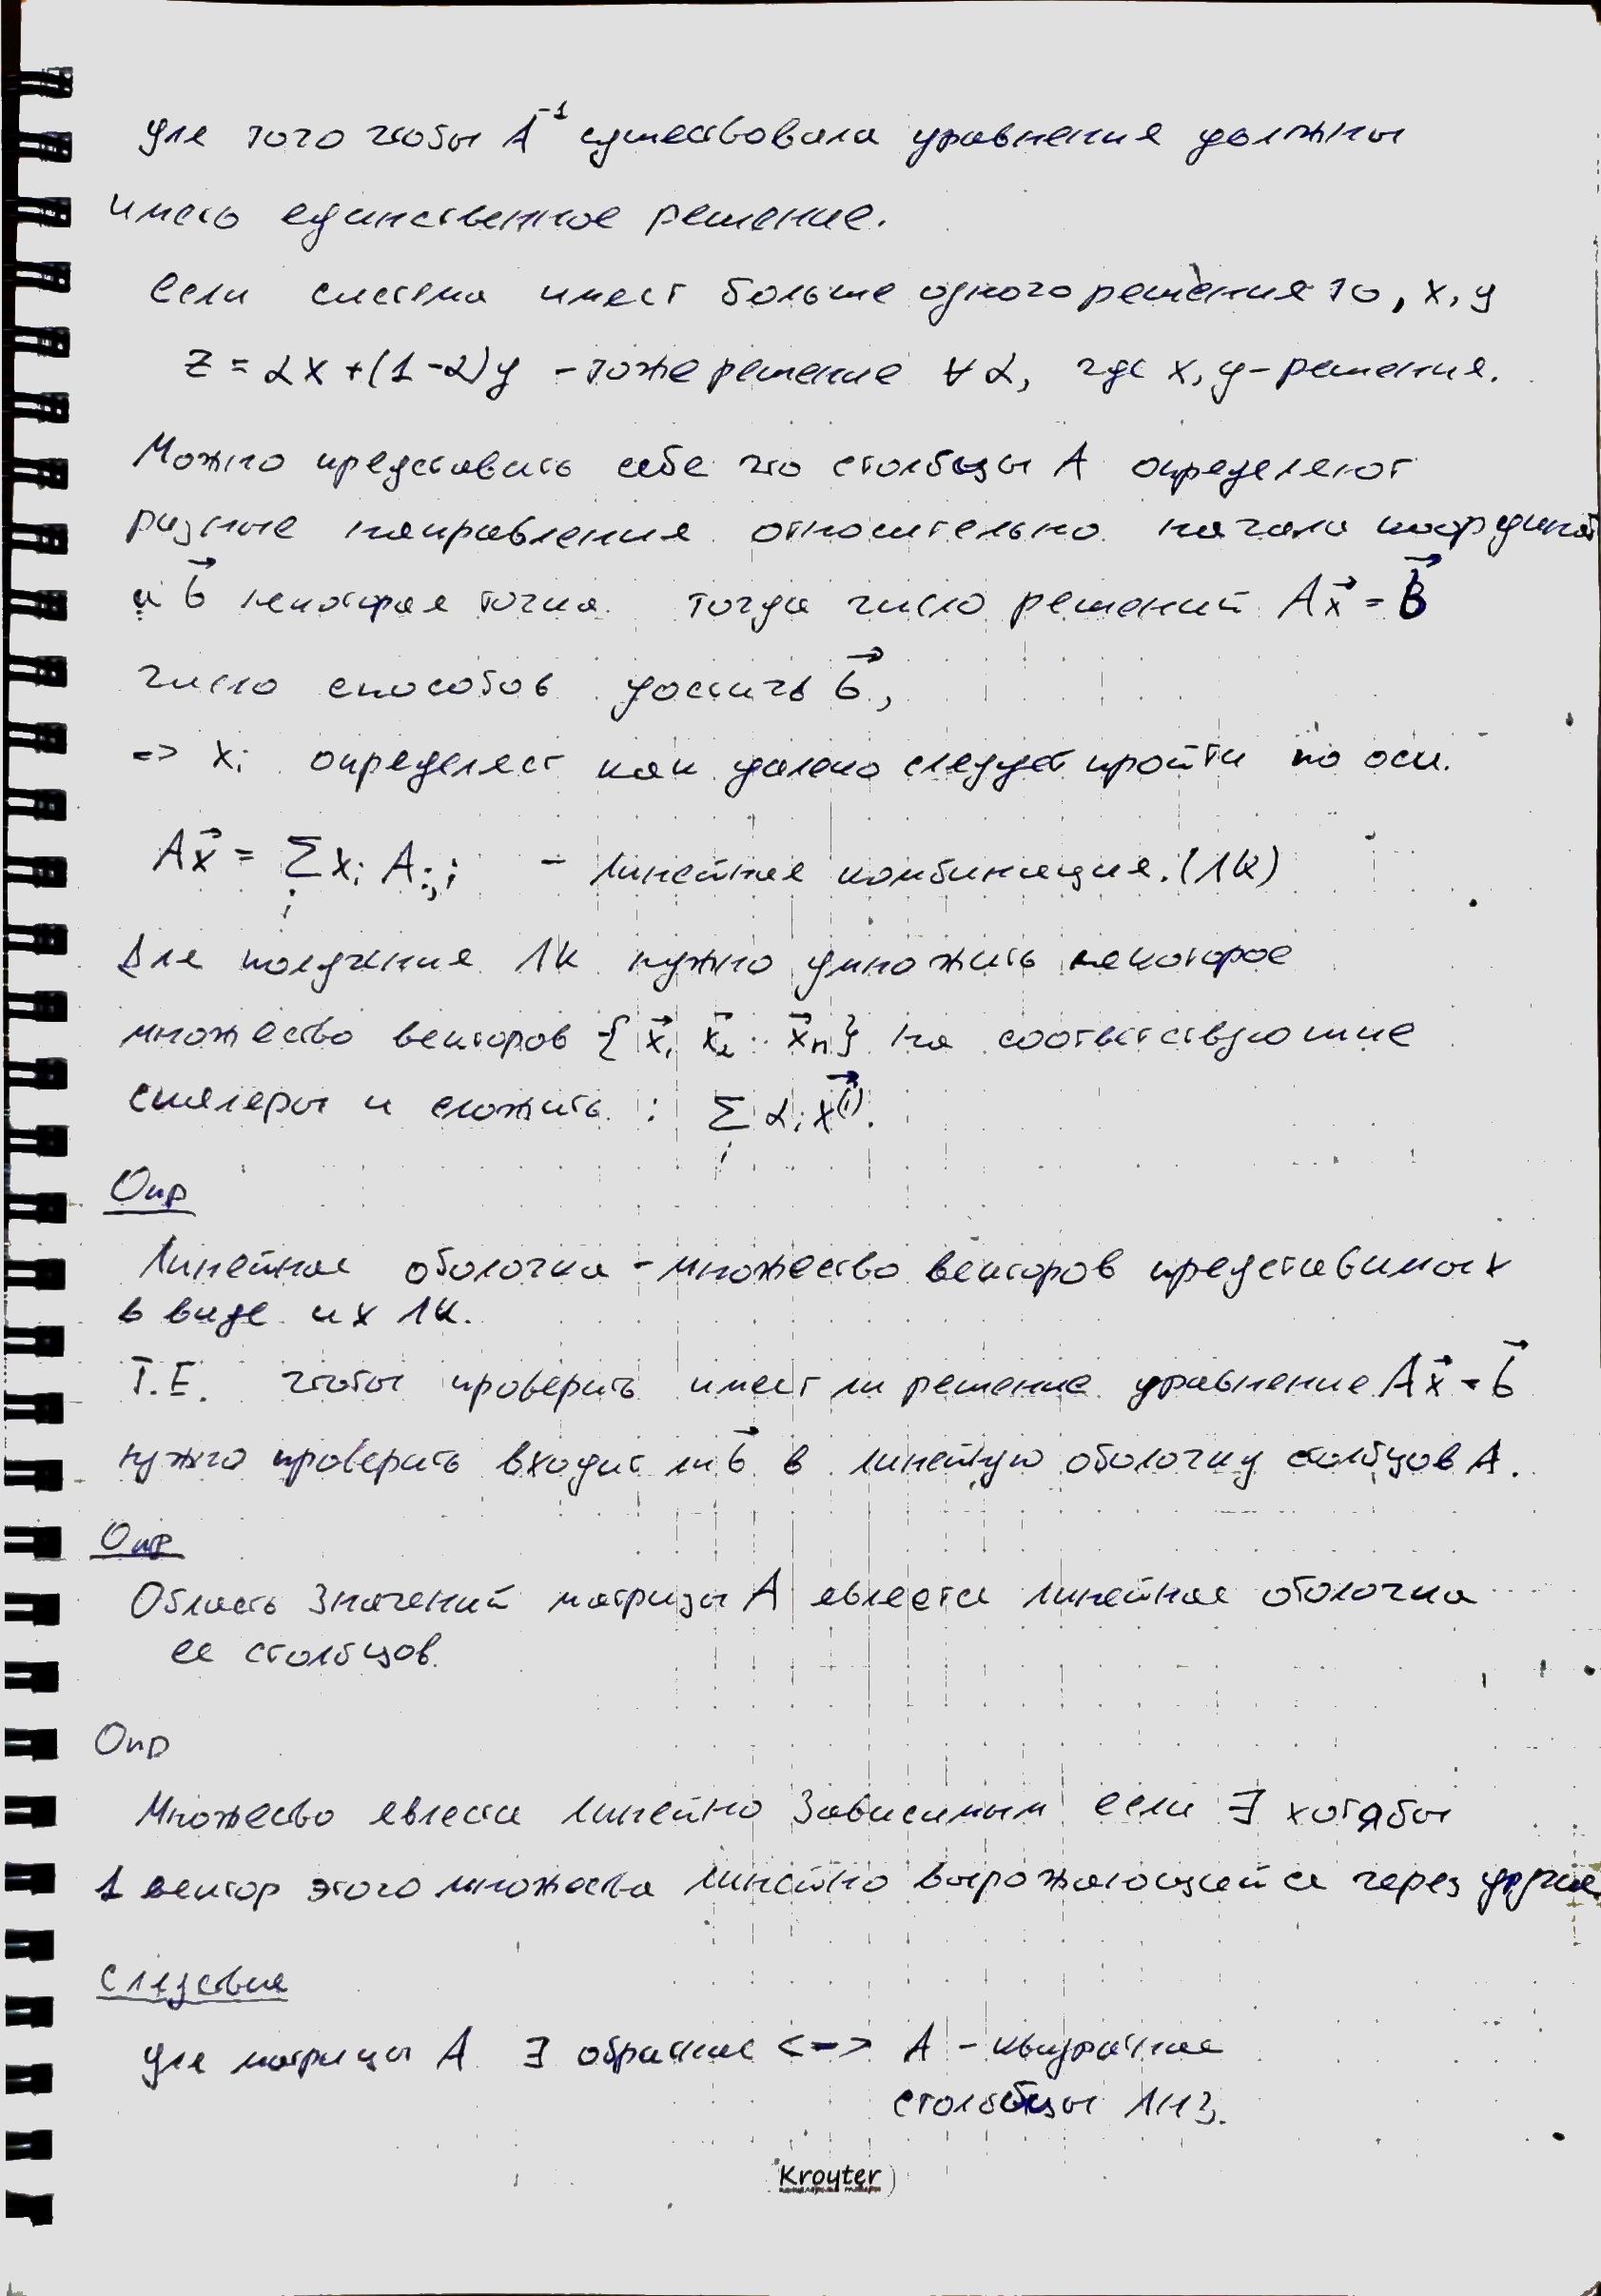 Для того чтобы A⁻¹ существовала уравнения должны
иметь единственное решение.
Если система имеет больше одного решения то, x, y
z = αx + (1-α)y - тоже решение ∀ α, где x, y - решения.
Можно представить себе что столбцы A определяют
разные направления относительно начала координат
а b⃗ некоторая точка. тогда число решений Ax⃗ = b⃗
число способов достичь b⃗,
=> xᵢ определяет как далеко следует пройти по оси.
Ax⃗ = Σᵢ xᵢ A:,ᵢ - линейная комбинация. (ЛК)
Для получения ЛК нужно умножить некоторое
множество векторов {x⃗₁ x⃗₂ .. x⃗ₙ} на соответствующие
скаляры и сложить : Σᵢ αᵢ x⃗⁽ⁱ⁾.
Опр
Линейная оболочка - множество векторов представимых
в виде их ЛК.
Т.Е. чтобы проверить имеет ли решение уравнение Ax⃗ = b⃗
нужно проверить входит ли b⃗ в линейную оболочку столбцов A.
Опр
Область значений матрицы A является линейная оболочка
ее столбцов.
Опр
Множество является линейно зависимым если ∃ хотябы
1 вектор этого множества линейно выражающийся через другие
Следствие
Для матрицы A ∃ обратная <-> A - квадратная
столбцы ЛНЗ.
Kroyter
канцелярские товары